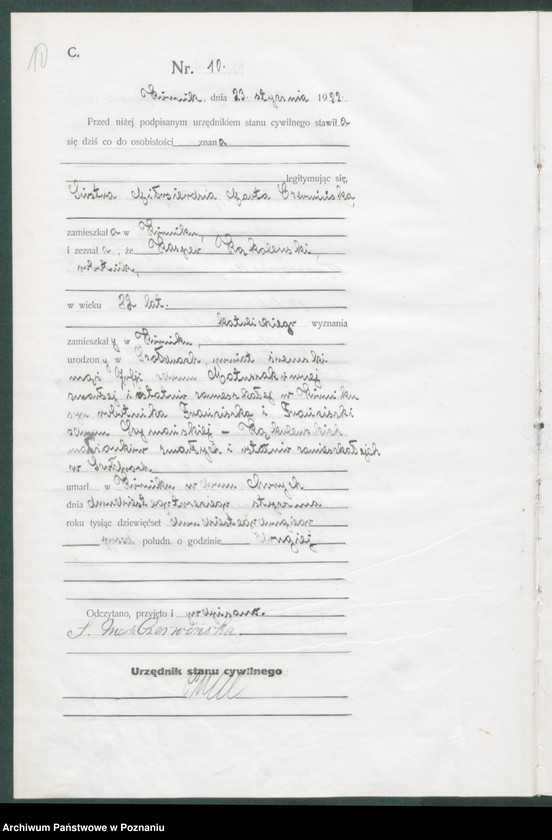 10
C.
Nr. 10.
Kórnik, dnia 23. stycznia 1922
Przed niżej podpisanym urzędnikiem stanu cywilnego stawiła
się dziś co do osobistości znana
legitymując się,
Siostra Miłosierdzia Marta Czerwińska,
zamieszkała w Kórniku,
i zeznała, że Kasper Kąkolewski,
robotnik,
w wieku lat
katolickiego wyznania
zamieszkały w Kórniku,
urodzony w powiat śremski
mąż Zofji z domu
zmarłej i ostatnio zamieszkałej w Kórniku
syn robotnika Franciszka i Franciszki
z domu Szymańskiej – Kąkolewskich
małżonków zmarłych i ostatnio zamieszkałych
w
umarł w Kórniku w domu chorych
dnia dwudziestegotrzeciego stycznia
roku tysiąc dziewięćset dwudziestegodrugiego
przed połudn. o godzinie drugiej
Odczytano, przyjęto i podpisano.
S. Marta Czerwińska.
Urzędnik stanu cywilnego
Archiwum Państwowe w Poznaniu